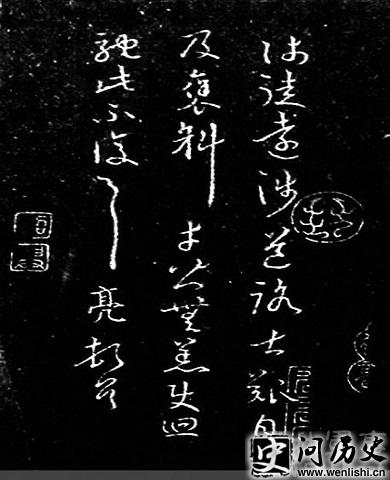 師徒遠涉道路甚艱自
及褒斜幸皆無恙使迴
馳此不復云亮頓首
史问历史
www.wenlishi.cn